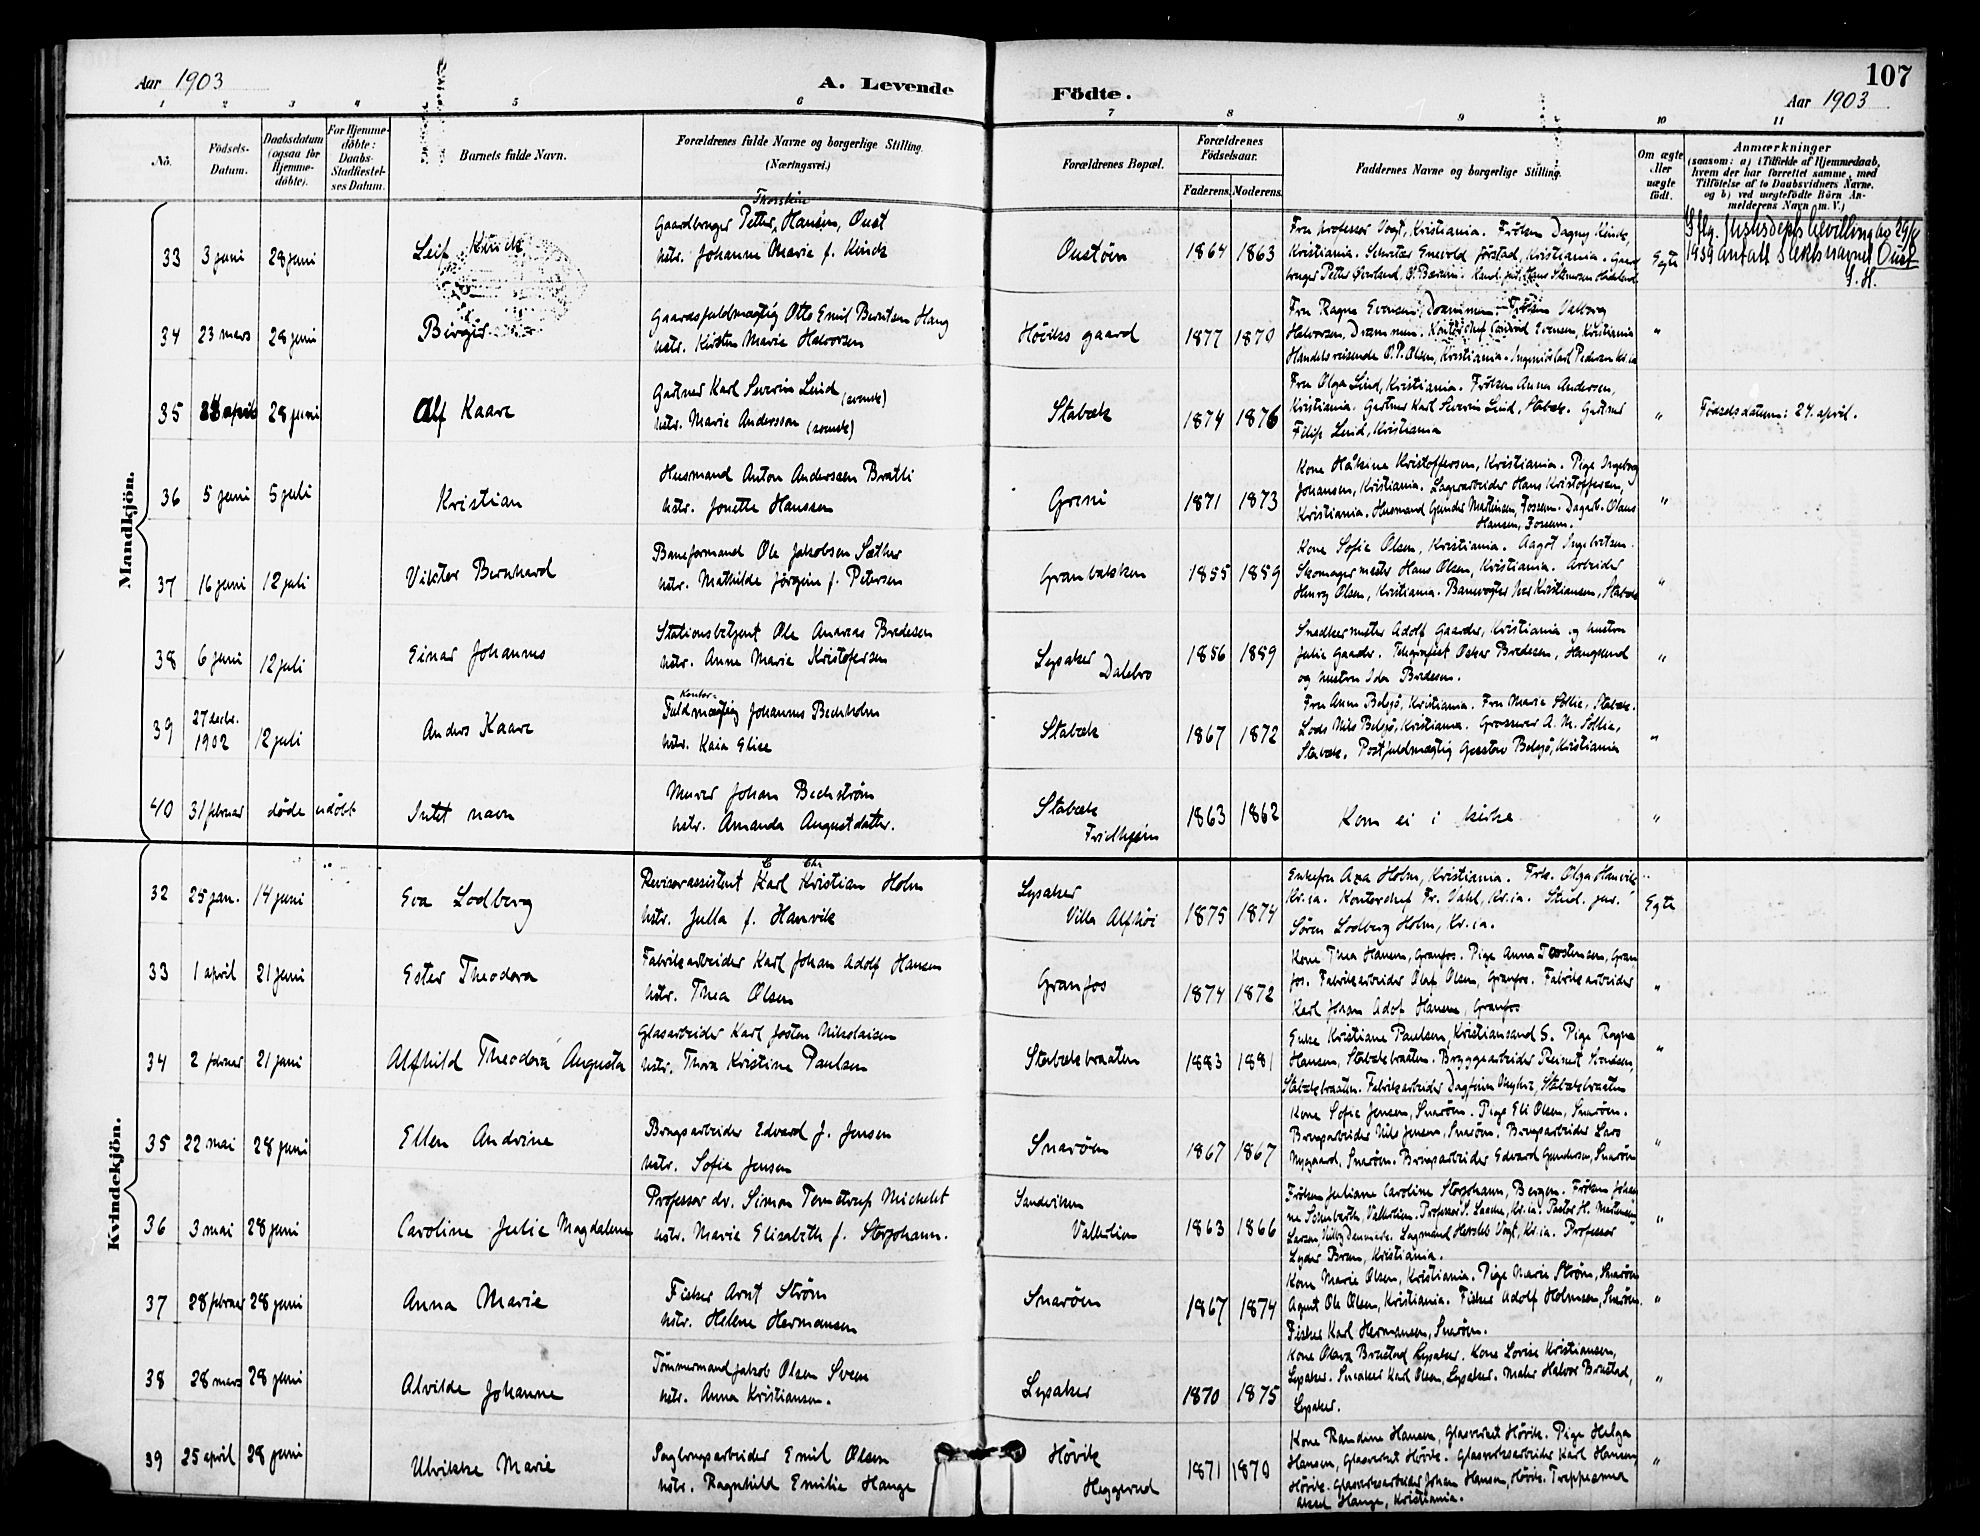 107
Aar 1903
A. Levende
Födte.
Aar 1903
1 2 3 4 5 6 7 8 9 10 11
No.
Födsels-
Datum.
Daabsdatum
(ogsaa for
Hjemme-
döbte).
For Hjemme-
döbte:
Daabs-
Stadfæstel-
ses Datum.
Barnets fulde Navn.
Forældrenes fulde Navne og borgerlige Stilling.
(Næringsvei.)
Forældrenes Bopæl.
Forældrenes
Födselsaar.
Faderens. Moderens.
Faddernes Navne og borgerlige Stilling.
Om ægte
eller
uægte
födt.
Anmærkninger
(saasom: a) i Tilfælde af Hjemmedaab,
hvem der har forrettet samme, med
Tilföielse af to Daabsvidners Navne.
og b) ved uægtefödte Börn An-
melderens Navn m. V.)
Mandkjön.
33 3 juni 28 juni
Leif Kinck
Gaardbruger Petter Thorstein Hansen, Oust
hstr. Johanne Marie f. Kinck
Oustöen
1864 1863
Fru professor Vogt, Kristiania. Fröken Dagny Kinck,
Kristiania.
Egte
1959 antatt slektsnavnet Oust
34 23 mars 28 juni
Birger
Gaardsfuldmægtig Otto Emil Berntsen Haug
hstr. Kirsten Marie Halvorsen
Höviks gaard
1877 1870
Fru Ragna Evensen, Drammen. Fröken Valborg
Halvorsen, Drammen. Kontorchef Evensen, Kristiania
Handelsreisende O. P. Olsen, Kristiania. Ingeniör Carl Pedersen Kr.ia
"
35 28 juni
Alf Kaare
Gartner Karl Severin Lind (svensk)
hstr. Marie Andersson (svensk)
Stabæk
1874 1876
Fru Olga Lind, Kristiania. Fröken Anna Andersen,
Kristiania. Gartner Karl Severin Lind, Stabæk. Gartner
Filip Lind, Kristiania
"
Födselsdatum: 24. april.
36 5 juni 5 juli
Kristian
Husmand Anton Anderssen Bratli
hstr. Jonette Hanssen
Grini
1871 1873
Kone Kristoffersen, Kristiania. Pige Ingeborg
Johansen, Kristiania. Lagerarbeider Hans Kristoffersen,
Kristiania. Husmand Gunder Martinsen, Fossum. Dagarb. Olaus
Hansen, Fossum.
"
37 16 juni 12 juli
Viktor Bernhard
Baneformand Ole Jakobsen Sæther
hstr. Mathilde Jörgine f. Petersen
Granbakken
1855 1859
Kone Sofie Olsen, Kristiania. Aagot Ingebretsen.
Skomagermester Hans Olsen, Kristiania. Arbeider
Henry Olsen, Kristiania. Banevogter Iver Kristiansen, Stabæk
"
38 6 juni 12 juli
Einar Johannes
Stationsbetjent Ole Andreas Bredesen
hstr. Anne Marie Kristofersen
Lysaker
Dalebro
1856 1859
Snedkermester Adolf Gaarder, Kristiania og hustru
Julie Gaarder. Telegrafist Oskar Bredesen, Haugsund
og hustru Ida Bredesen.
"
39 27 decbr. 1902 12 juli
Anders Kaare
Kontor-
Fuldmægtig Johannes Bechholm
hstr. Kaia Elise
Stabæk
1867 1872
Fru Anna Belsjö, Kristiania. Fru Marie Sollie, Stabæk.
Lods Nils Belsjö, Kristiania. Grosserer A. M. Sollie,
Stabæk. Postfuldmægtig Gustav Belsjö, Kristiania
"
40 31 februar döde udöbt
Intet navn
Murer Johan Beckström
hstr. Amanda Augustdatter.
Stabæk
Fridhjem
1863 1862
Kom ei i kirke
"
Kvindekjön.
32 25 jan. 14 juni
Eva Lodberg
Revisorassistent Karl Kristian Holm
C Chr
hstr. Julla f. Hanvik
Lysaker
Villa Alfhöi
1875 1874
Enkefru Holm, Kristiania. Frk. Olga Hanvik
Kr.ia. Kontorchef Fr. Vahl, Kr.ia. Stud. jur.
Sören Lodberg Holm, Kr.ia.
Egte
33 1 april 21 juni
Ester Theodora
Fabrikarbeider Karl Johan Adolf Hansen
hstr. Thea Olsen
Granfos
1874 1872
Kone Thea Hansen, Granfos. Pige Anna Torstensen, Gran
fos. Fabrikarbeider Olaf Olsen, Granfos. Fabrikarbeider
Karl Johan Adolf Hansen, Granfos
"
34 2 februar 21 juni
Alfhild Theodora Augusta
Glasarbeider Karl Josten Nikolaisen
hstr. Thora Kristine Paulsen
Stabækbraaten
1883 1881
Enke Kristiane Paulsen, Kristiansand S. Pige Ragna
Hansen, Stabækbraaten. Bryggearbeider Reinert Svendsen,
Stabækbraaten. Fabrikarbeider Dagfinn Stabækbraaten
"
35 22 mai 28 juni
Ellen Andrine
Brugsarbeider Edvard J. Jensen
hstr. Sofie Jensen
Snaröen
1867 1867
Kone Sofie Jensen, Snaröen. Pige Eli Olsen, Snaröen.
Brugsarbeider Nils Jensen, Snaröen. Brugsarbeider Lars
Nygaard, Snaröen. Brugsarbeider Edvard Gundersen, Snaröen
"
36 3 mai 28 juni
Caroline Julie Magdalene
Professor dr. Simon Temstrup Michelet
hstr. Marie Elisabeth f. Storjohann.
Sandviken
Vallerlien
1863 1866
Fröken Juliane Caroline Storjohann, Bergen. Fröken Johan
ne Schubarth, Vallerlien. Pastor H. Mortensen
Larsen Danmark. Lagmand Hersleb Vogt, Kr.ia. Professor
Lyder Brun, Kristiania.
"
37 28 februar 28 juni
Anna Marie
Fisker Arnt Ström
hstr. Helene Hermansen
Snaröen
1867 1874
Kone Marie Olsen, Kristiania. Pige Marie Ström, Snaröen
Agent Ole Olsen, Kristiania. Fisker Adolf Holmsen, Snaröen.
Fisker Karl Hermansen, Snaröen.
"
38 28 mars 28 juni
Alvilde Johanne
Tömmermand Jakob Olsen Sveen
hstr. Anna Kristiansen.
Lysaker
1870 1875
Kone Olava Brustad Lysaker. Kone Lovise Kristiansen,
Lysaker. Snekker Karl Olsen, Lysaker. Maler Halvor Brustad,
Lysaker.
"
39 25 april 28 juni
Ulrikke Marie
Sagbrugsarbeider Emil Olsen
hstr. Ragnhild Emilie Hauge
Hövik
Heggerud
1871 1870
Kone Randine Hansen, Glasverket Hövik. Pige Helga
Hansen, Glasverket Hövik. Glasverksarbeider Karl Hansen
Hövik. Glasverksarbeider Johan Hansen, Hövik.
Hauge, Kristiania.
"